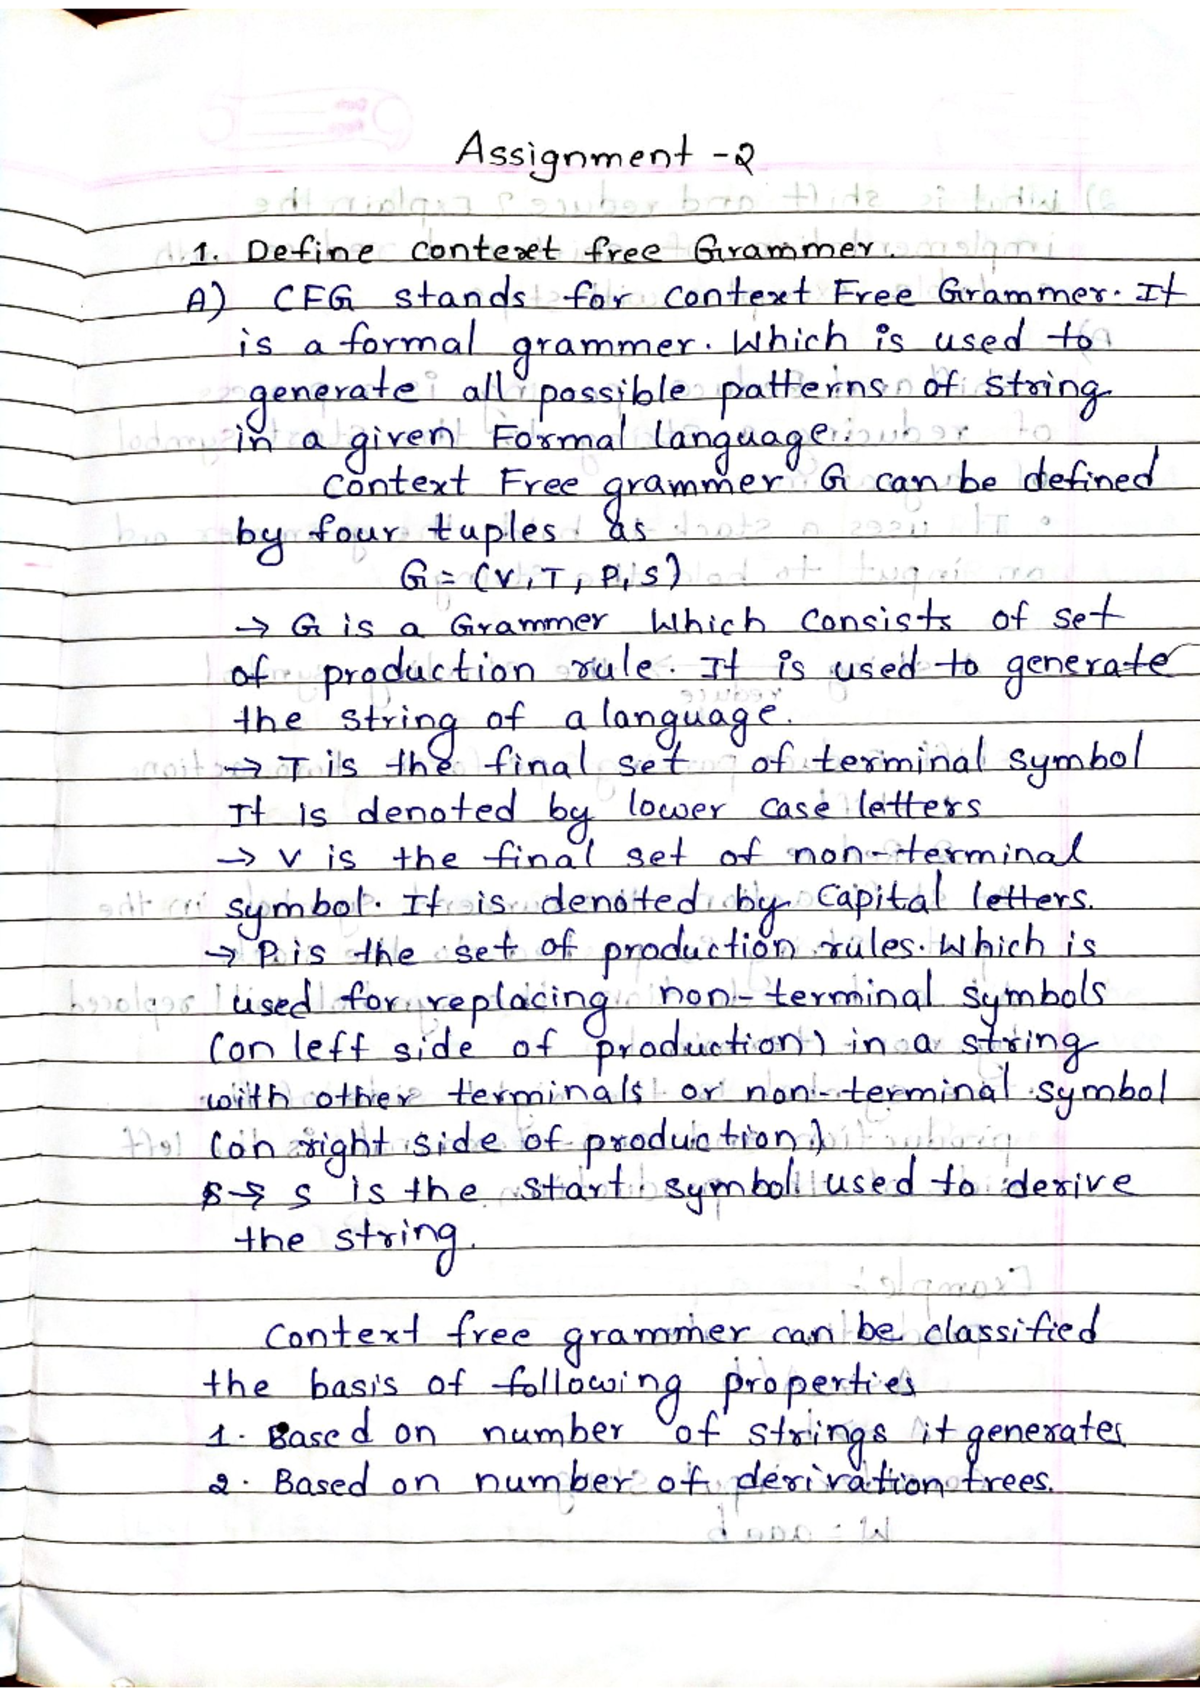 Assignment -2
1. Define context free Grammer.
A) CFG stands for context Free Grammer. It
is a formal grammer. Which is used to
generate all possible patterns of string
in a given Formal language.
Context Free grammer G can be defined
by four tuples as
G = (V, T, P, S)
→ G is a Grammer Which consists of set
of production rule. It is used to generate
the string of a language.
→ T is the final set of terminal symbol
It is denoted by lower case letters
→ V is the final set of non-terminal
symbol. It is denoted by Capital letters.
→ P is the set of production rules. Which is
used for replacing non-terminal symbols
(on left side of production) in a string
with other terminals or non-terminal symbol
(on right side of production)
→ S is the start symbol used to derive
the string.
Context free grammer can be classified
the basis of following properties
1. Based on number of strings it generates
2. Based on number of derivation trees.